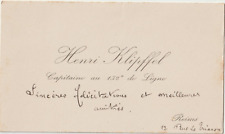 Henri Klipffel
Capitaine au 132e de Ligne
Sincères félicitations et meilleures
amitiés.
Reims
13 Rue